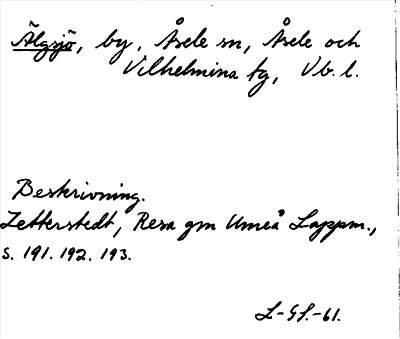 Älgsjö, by, Åsele sn, Åsele och
Vilhelmina tg, Vb. l.
Beskrivning.
Zetterstedt, Resa gm Umeå Lappm.,
s. 191. 192. 193.
L-GS.-61.